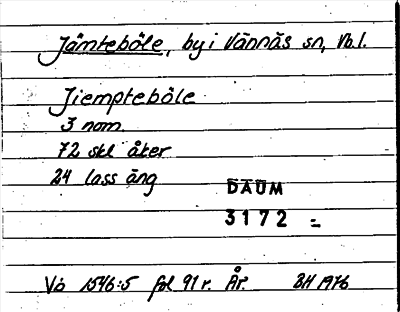 Jämteböle, by i Vännäs sn, Vb.l.
Jiempteböle
3 nom.
72 skl åker
24 lass äng
DAUM
3172
Vb 1546:5 fol 91 r. År. BH 1976